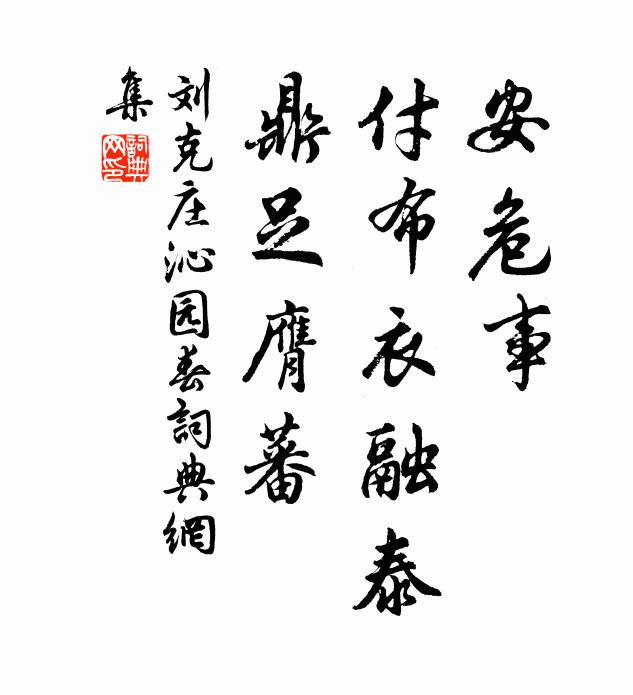 安危事
付布衣融泰
鼎足膺蕃
刘克庄沁园春詞典網
集
詞典
网印